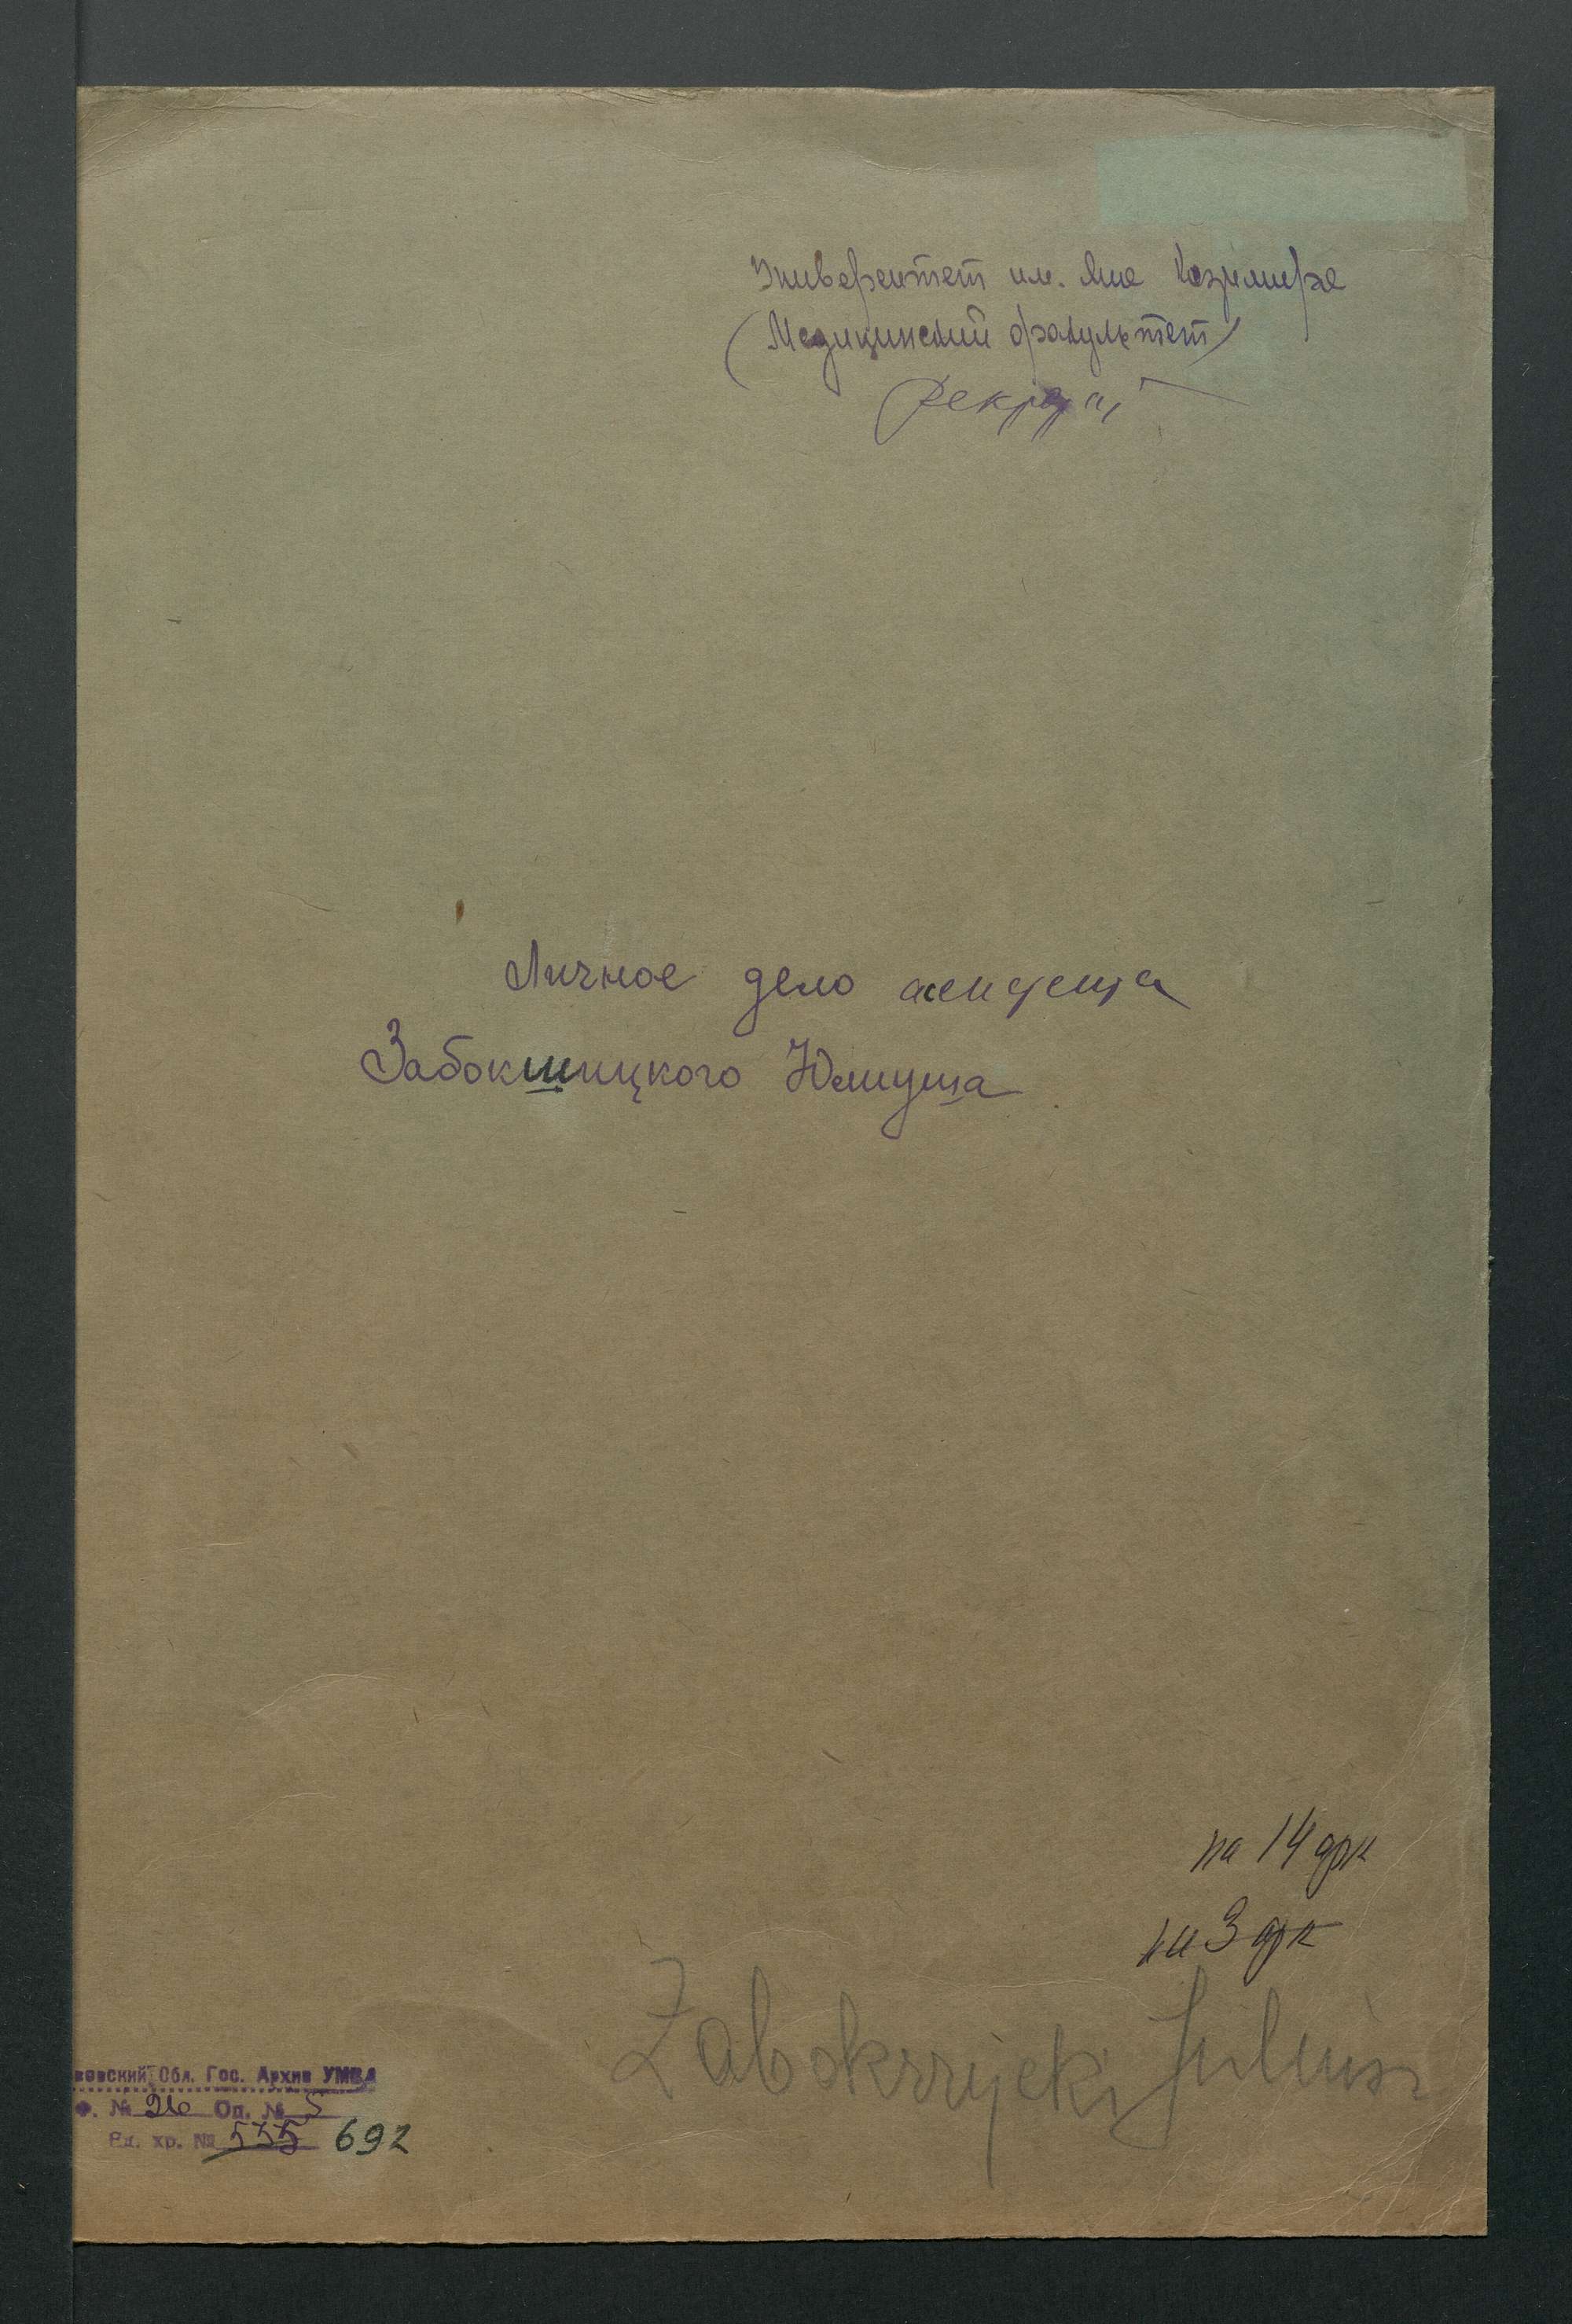 Университет им. Яна Казимира
(Медицинский факультет)
Личное дело
Забокшицкого Юлиуша
на 14 арк
на 3 арк
Zabokrzycki Juliusz
вовский Обл. Гос. Архив УМВД
Ф. № 26 Оп. № 5
Ед. хр. № 555 692